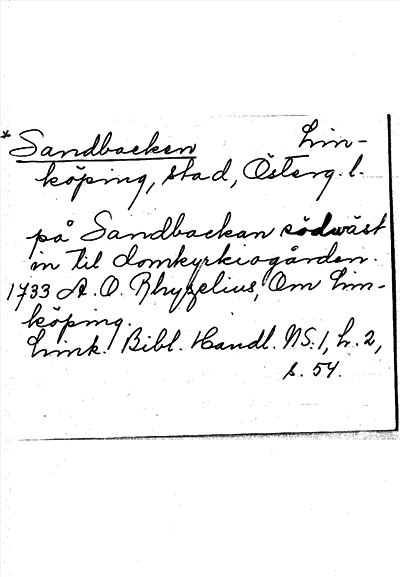 * Sandbacken Lin-
köping, stad, Österg. l.
på Sandbackan södwäst
in til domkyrkiogården.
1733 A. O. Rhyzelius, Om Lin-
köping.
Link. Bibl. Handl. NS. 1, h. 2,
s. 54.